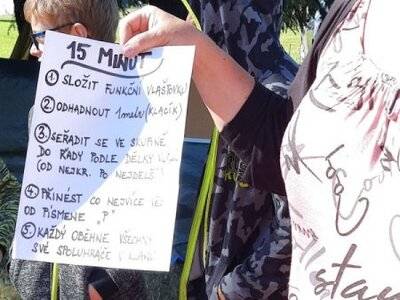 15 MINUT
① SLOŽIT FUNKČNÍ VLAŠTOVKU
② ODHADNOUT 1 metr (KLACÍK)
③ SEŘADIT SE VE SKUPINĚ
DO ŘADY PODLE DÉLKY
(OD NEJKR. PO NEJDELŠÍ
④ PŘINÉST CO NEJVÍCE
OD PÍSMENE "P"
⑤ KAŽDÝ OBĚHNE VŠECHNY
SVÉ SPOLUHRÁČE V